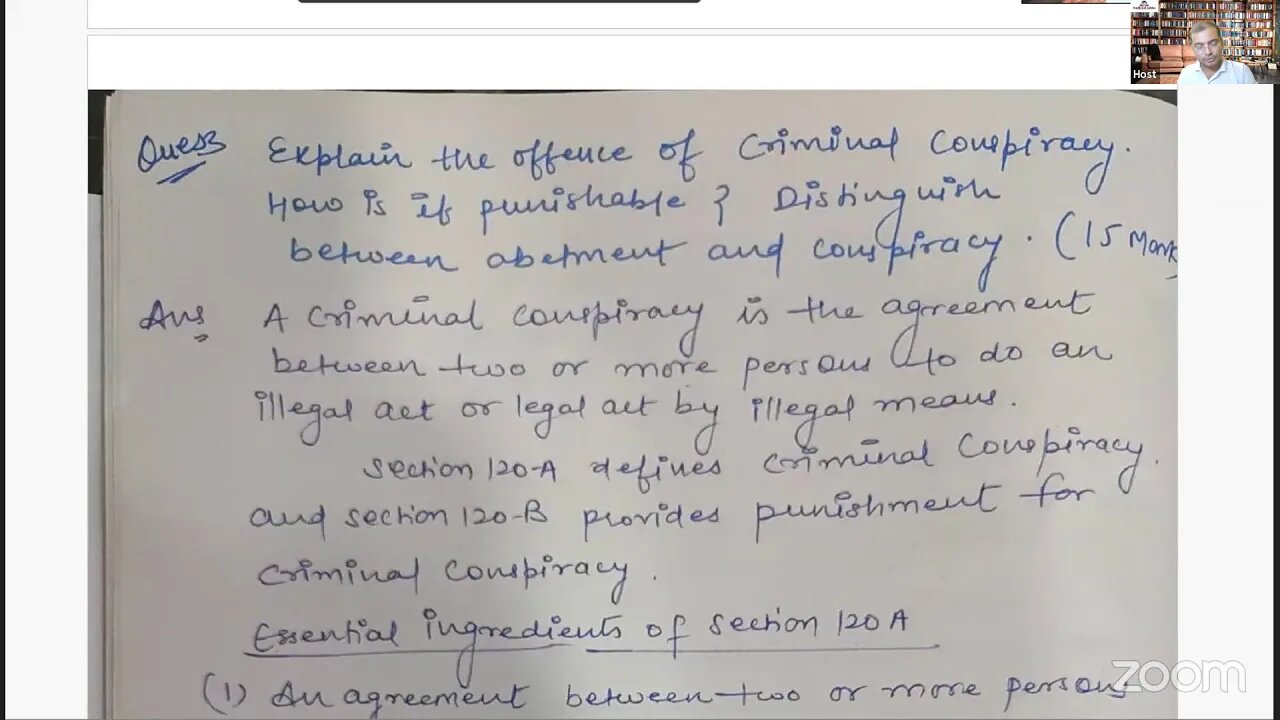 Host
Ques3 Explain the offence of Criminal Conspiracy.
How is it punishable ? Distinguish
between abetment and conspiracy. (15 Mark
Ans A criminal conspiracy is the agreement
between two or more persons to do an
illegal act or legal act by illegal means.
Section 120-A defines criminal conspiracy.
and section 120-B provides punishment for
criminal conspiracy.
Essential ingredients of section 120A
(1) An agreement between two or more persons
zoom